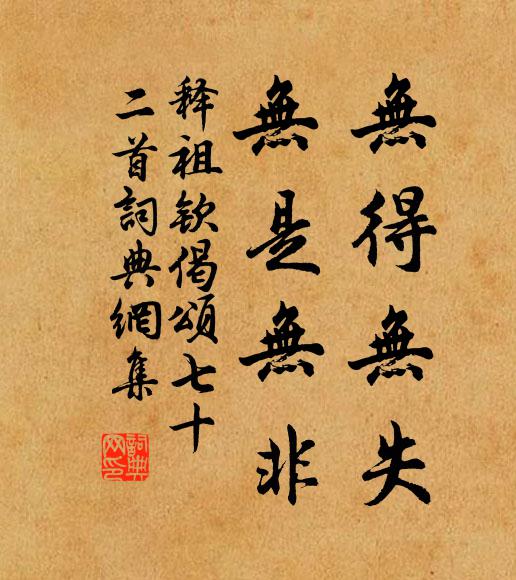 無得無失
無是無非
释祖钦偈頌七十
二首詞典網集
詞典网印